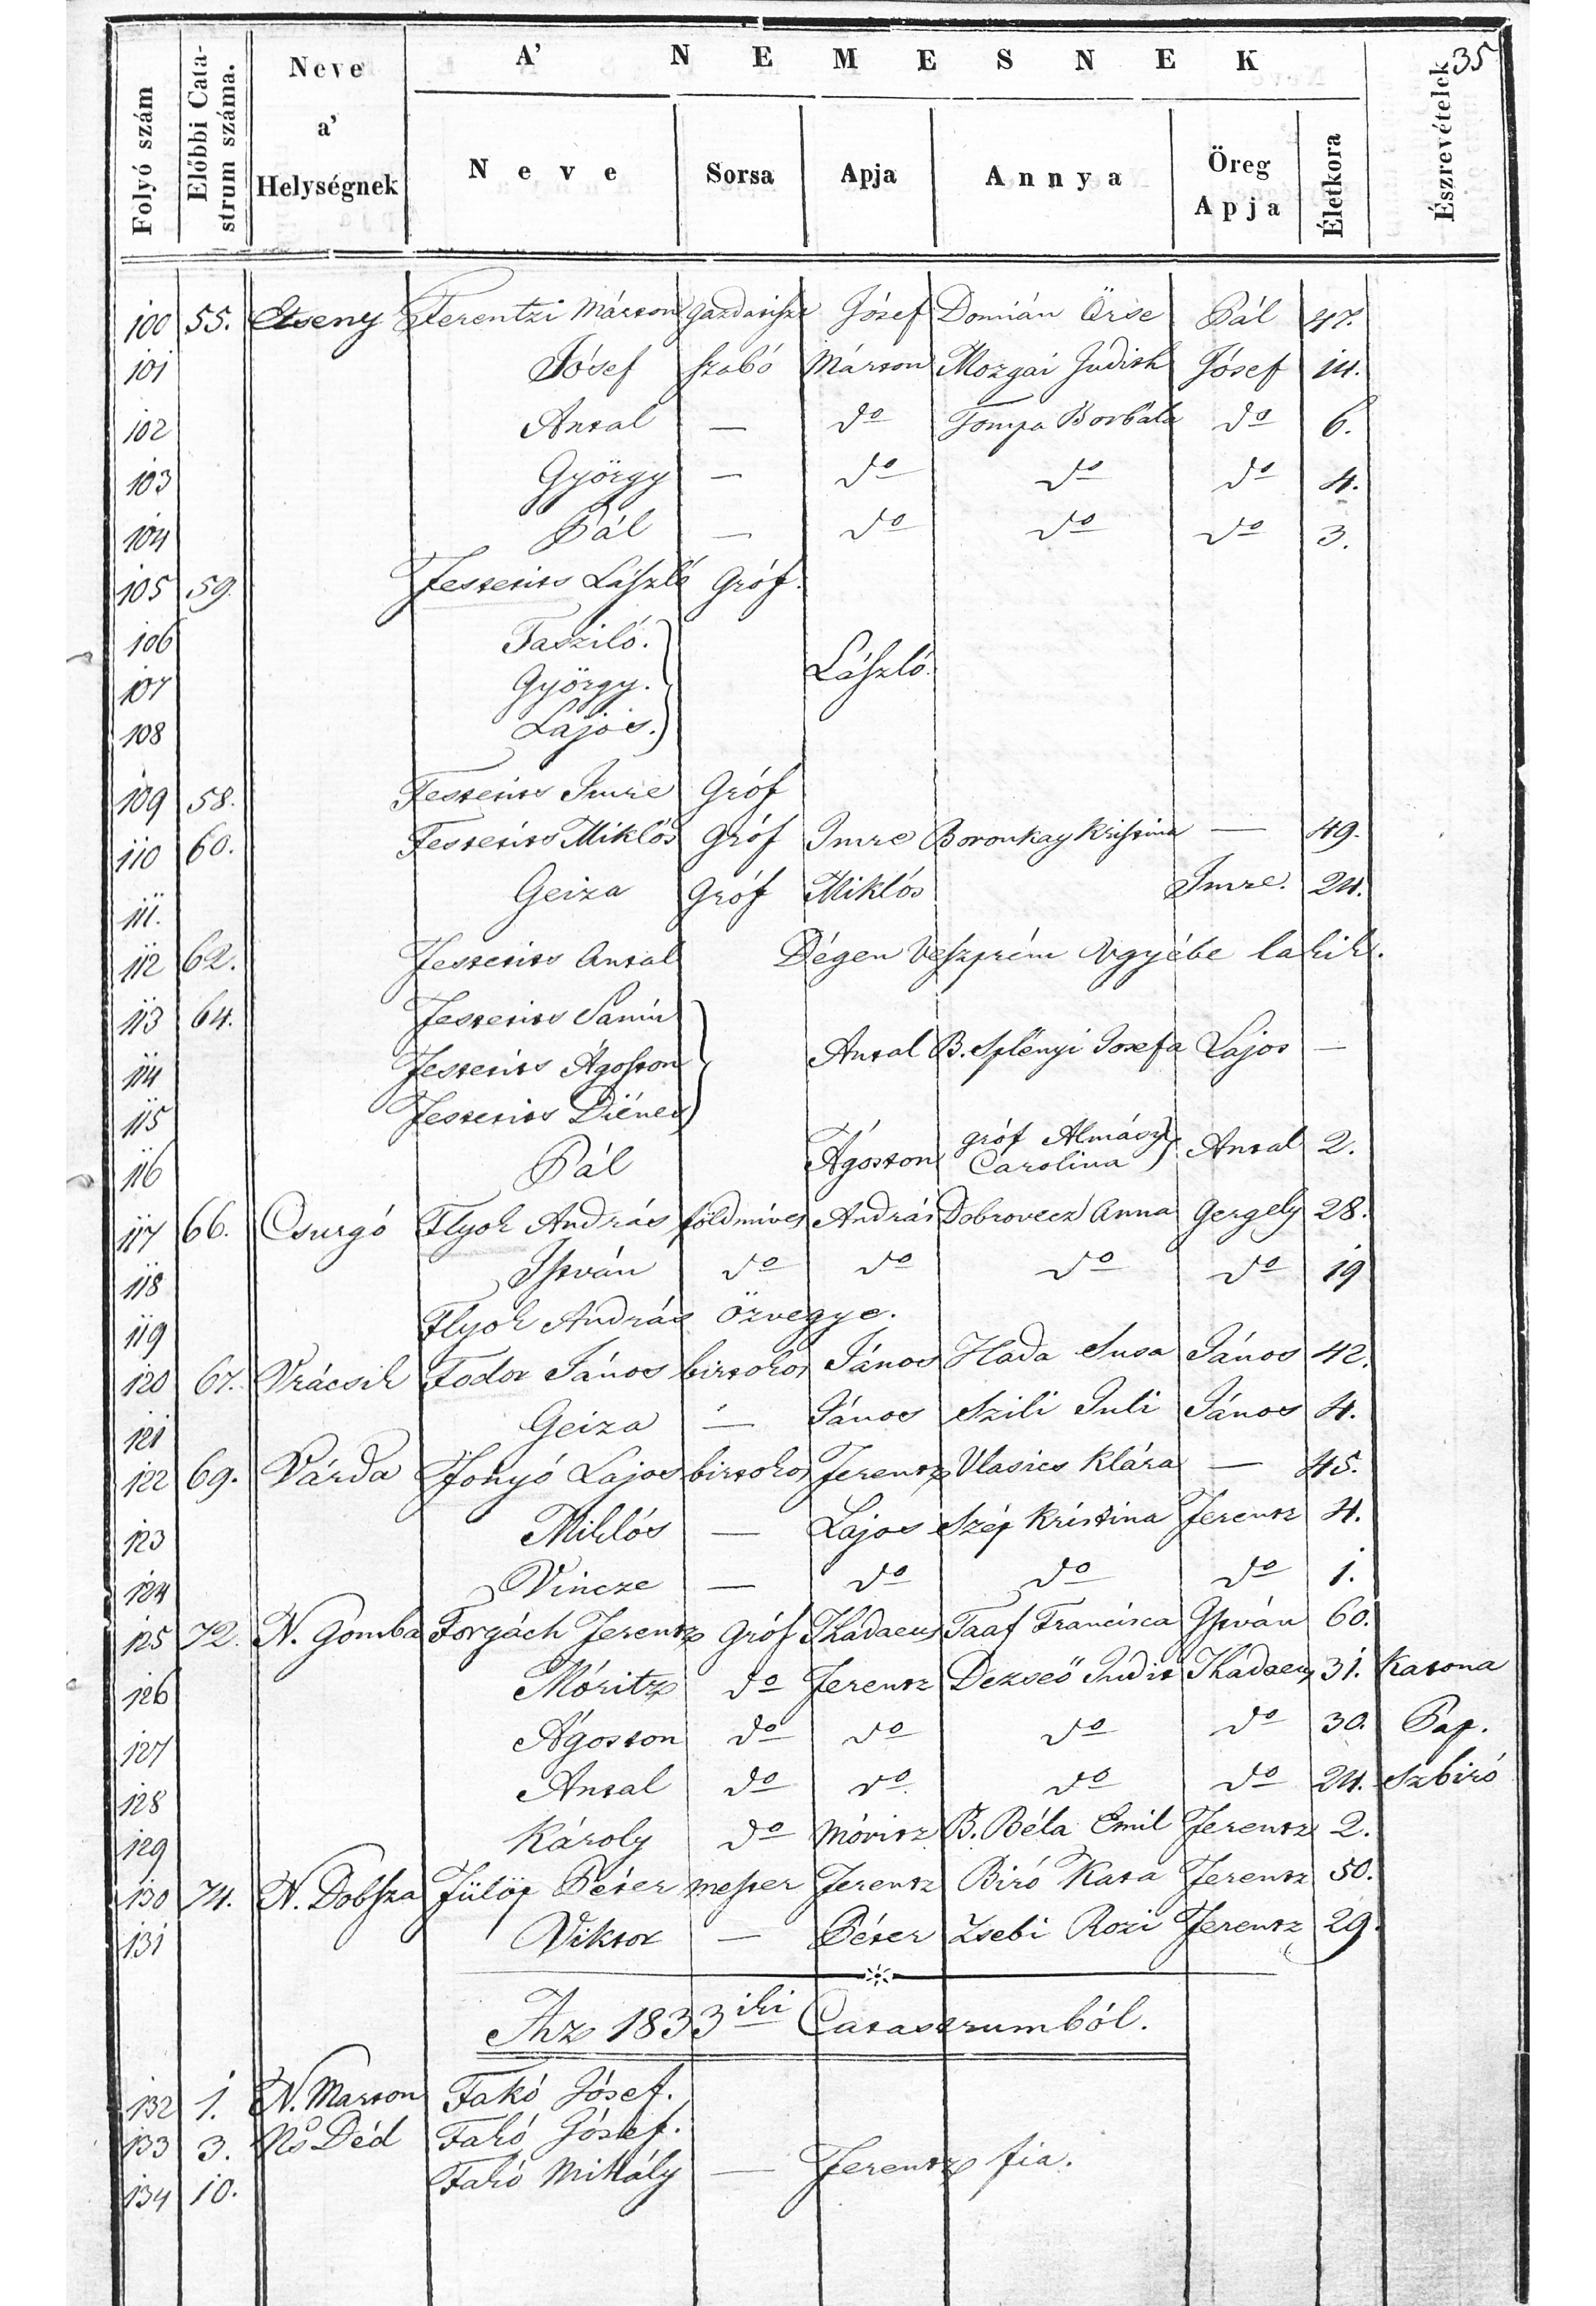 35
Folyó szám
Előbbi Cata-
strum száma.
Neve
a'
Helységnek
A' NEMESNEK
Neve
Sorsa
Apja
Annya
Öreg
Apja
Életkora
Észrevételek
100 55. Etseny Ferentzi Márton gazdatiszt Jósef Domián Örse Pál 47.
101 Jósef szabó Márton Mozgai Judith Jósef 14.
102 Antal — do Tompa Borbála do 6.
103 György — do do do 4.
104 Pál — do do do 3.
105 59. Festetits László Gróf.
106 Tasziló.
107 György. László.
108 Lajos.
109 58. Festetits Imre Gróf
110 60. Festetits Miklós Gróf Imre Boronkay Kristina — 49.
111. Geiza Gróf Miklós Imre. 24.
112 62. Festetits Antal Dégen Veszprém vgyébe lakik.
113 64. Festetits Samu
114 Festetits Ágoston Antal B. Splényi Josefa Lajos —
115 Festetits Diénes
116 Pál Ágoston gróf Almásy Carolina Antal 2.
117 66. Csurgó Flyok András földmíves András Dobrovecz Anna Gergely 28.
118 István do do do do 19
119 Flyok András Özvegye.
120 67. Vrácsik Fodor János birtokos János Hada Susa János 42.
121 Geiza — János Szili Juli János 4.
122 69. Várda Fonyó Lajos birtokos Ferentz Vlasics Klára — 45.
123 Miklós — Lajos Szép Kristina Ferentz 4.
124 Vincze — do do do 1.
125 72. N. Gomba Forgách Ferentz Gróf Thádaeus Taaf Francisca István 60.
126 Móritz do Ferentz Dezseö Judit Thadaeus 31. Katona
127 Ágoston do do do do 30. Pap.
128 Antal do do do do 24. Szbiró
129 Károly do Móritz B. Béla Emil Ferentz 2.
130 74. N. Dobsza Fülöp Péter mester Ferentz Biró Kata Ferentz 50.
131 Viktor — Péter Zsebi Rozi Ferentz 29.
Az 1833iki Catastrumból.
132 1. N. Marton Fakó Jósef.
133 3. Ns Déd Fakó Jósef.
134 10. Fakó Mihály — Ferentz fia.